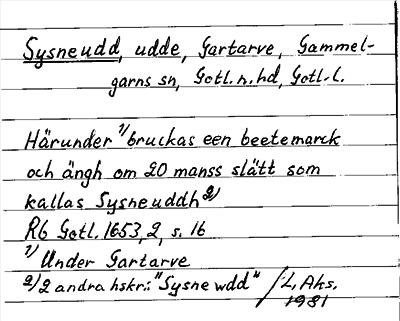 Sysneudd, udde, Gartarve, Gammel-
garns sn, Gotl. n. hd, Gotl. l.
Härunder 1/ bruckas een beetemarck
och ängh om 20 manss slätt som
kallas Sysneuddh 2/
RG Gotl. 1653, 2, s. 16
1/ Under Gartarve
2/ 2 andra hskr: "Sysne wdd" / L. Ahs.
1981